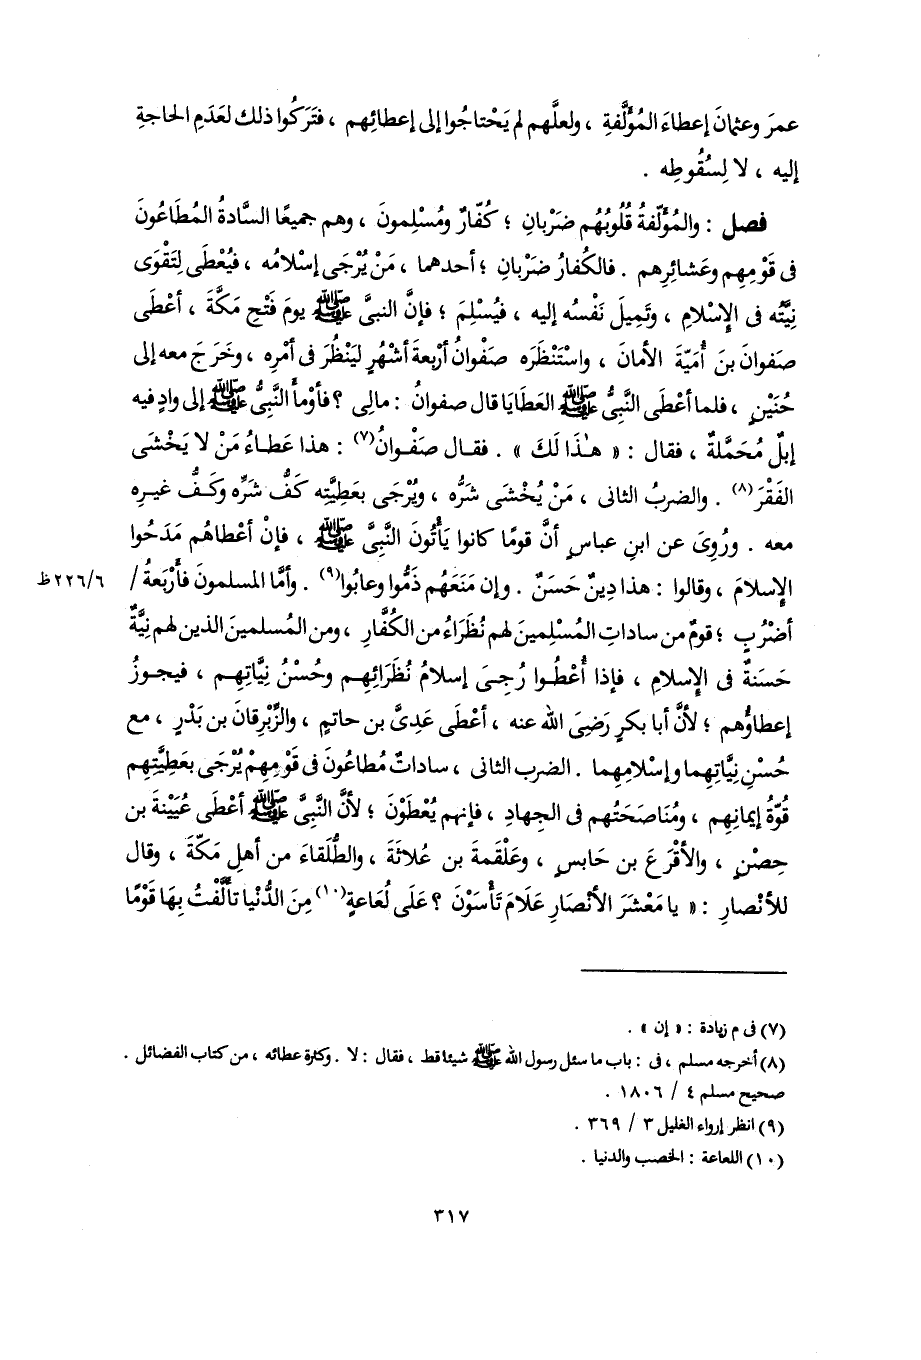 عمرَ وعثمانَ إعطاءَ المُؤَلَّفةِ ، ولعلَّهم لم يَحْتاجُوا إلى إعطائِهم ، فتَرَكُوا ذلك لعَدَمِ الحاجةِ
إليه ، لا لِسُقُوطِه .
فصل : والمُؤَلّفةُ قُلُوبُهُم ضَرْبانِ ؛ كُفّارٌ ومُسْلِمونَ ، وهم جميعًا السَّادةُ المُطَاعُونَ
فى قَوْمِهم وعَشائِرِهم . فالكُفارُ ضَرْبانِ ؛ أحدهما ، مَنْ يُرْجَى إسْلامُه ، فيُعْطَى لِتَقْوَى
نِيَّتُه فى الإِسْلامِ ، وتَمِيلَ نَفْسُه إليه ، فيُسْلِمَ ؛ فإنَّ النبىَّ ﷺ يومَ فَتْحِ مكَّةَ ، أعْطَى
صفوانَ بنَ أُمَيّةَ الأمانَ ، واسْتَنْظَرَه صَفْوانُ أرْبعةَ أشْهُرٍ لِيَنْظُرَ فى أمْرِه ، وخَرَجَ معه إلى
حُنَيْنٍ ، فلما أعْطَى النَّبِىُّ ﷺ العَطَايَا قال صفوانُ : مالِى ؟ فأوْمأَ النَّبِىُّ ﷺ إلى وادٍ فيه
إبلٌ مُحَمَّلةٌ ، فقال : « هـٰذَا لَكَ » . فقـال صَفْـوانُ(٧) : هذا عَطـاءُ مَنْ لا يَخْشَى
الفَقْرَ(٨) . والضربُ الثانى ، مَنْ يُخْشَى شَرُّه ، ويُرْجَى بعَطِيَّتِه كَفُّ شَرِّه وكَـفُّ غيـرِه
معه . ورُوِىَ عن ابنِ عباسٍ أنَّ قومًا كانوا يَأْتُونَ النَّبِىَّ ﷺ ، فإنْ أعْطاهُم مَدَحُوا
الإسلامَ ، وقالوا : هذا دِينٌ حَسَنٌ . وإن مَنَعَهُم ذَمُّوا وعابُوا(٩) . وأمَّا المسلمونَ فأَرْبَعةُ / ٢٢٦/٦ظ
أضْرُبٍ ؛ قومٌ من ساداتِ المُسْلِمينَ لهم نُظَرَاءُ من الكُفَّارِ ، ومن المُسلمينَ الذين لهم نِيَّةٌ
حَسَنةٌ فى الإسلامِ ، فإذا أُعْطُـوا رُجِـىَ إسلامُ نُظَرَائِهِـم وحُسْنُ نِيَّاتِهِـم ، فيجـوزُ
إعطاؤُهم ؛ لأنَّ أبا بكرٍ رَضِىَ الله عنه ، أعْطَى عَدِىَّ بن حاتمٍ ، والزِّبْرِقانَ بن بَدْرٍ ، مع
حُسْنِ نِيَّاتِهِما وإسْلامِهِما . الضرب الثانى ، ساداتٌ مُطاعُونَ فى قَوْمِهِمْ يُرْجَى بعَطِيَّتِهِم
قُوّةُ إيمانِهِم ، ومُنَاصَحَتُهم فى الجِهادِ ، فإنهم يُعْطَوْنَ ؛ لأنَّ النَّبِىَّ ﷺ أعْطَى عُيَيْنةَ بن
حِصْنٍ ، والأقْرَعَ بن حَابِسٍ ، وعَلْقَمةَ بن عُلَاثَةَ ، والطُّلَقاءَ من أهلِ مَكّةَ ، وقال
للأنْصارِ : « يا مَعْشَرَ الأنْصَارِ عَلَامَ تَأْسَوْنَ ؟ عَلَى لُعَاعةٍ(١٠) مِنَ الدُّنْيا تألَّفْتُ بِهَا قَوْمًا
(٧) فى م زيادة : « إن » .
(٨) أخرجه مسلم ، فى : باب ما سئل رسول الله ﷺ شيئا قط ، فقال : لا . وكثرة عطائه ، من كتاب الفضائل .
صحيح مسلم ٤ / ١٨٠٦ .
(٩) انظر إرواء الغليل ٣ / ٣٦٩ .
(١٠) اللعاعة : الخصب والدنيا .
٣١٧